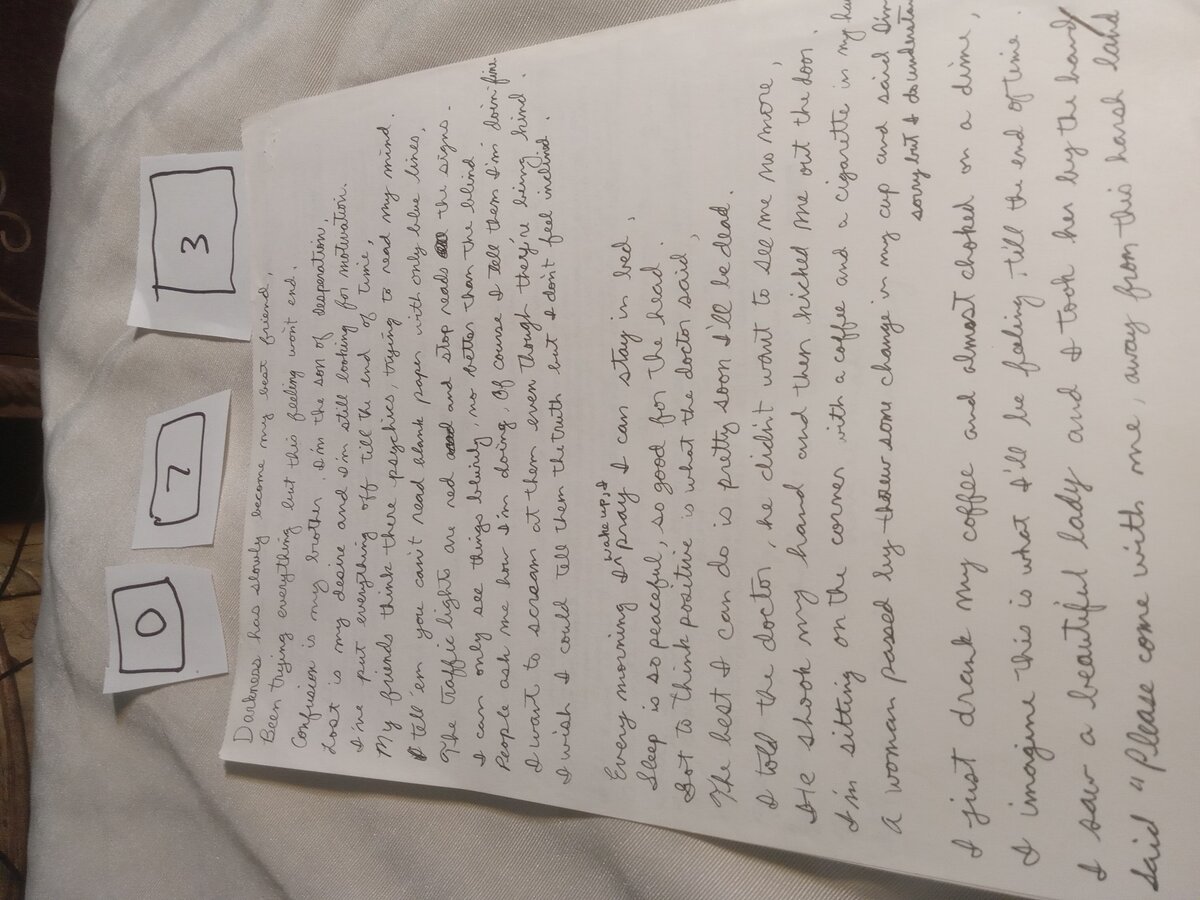 0
7
3
Darkness has slowly become my best friend,
Been trying everything but this feeling won't end.
Confusion is my brother, I'm the son of desperation,
Lost is my desire and I'm still looking for motivation.
I've put everything off till the end of time,
My friends think there psychics, trying to read my mind.
I tell em you can't read blank paper with only blue lines,
The traffic lights are red and stop reads the signs.
I can only see things blurily, no better than the blind
People ask me how I'm doing, Of course I tell them I'm doin fine
I want to scream at them even though they're being kind.
I wish I could tell them the truth but I don't feel inclined.
Every morning I wake up, I pray I can stay in bed,
Sleep is so peaceful, so good for the head.
Got to think positive is what the doctor said,
The best I can do is pretty soon I'll be dead.
I told the doctor, he didn't want to see me no more,
He shook my hand and then kicked me out the door.
I'm sitting on the corner with a coffee and a cigarette in my
a woman passed by threw some change in my cup and said I'm
sorry but I do
I just drank my coffee and almost choked on a dime,
I imagine this is what I'll be feeling, till the end of time.
I saw a beautiful lady and I took her by the hand
Said "Please come with me, away from this harsh land